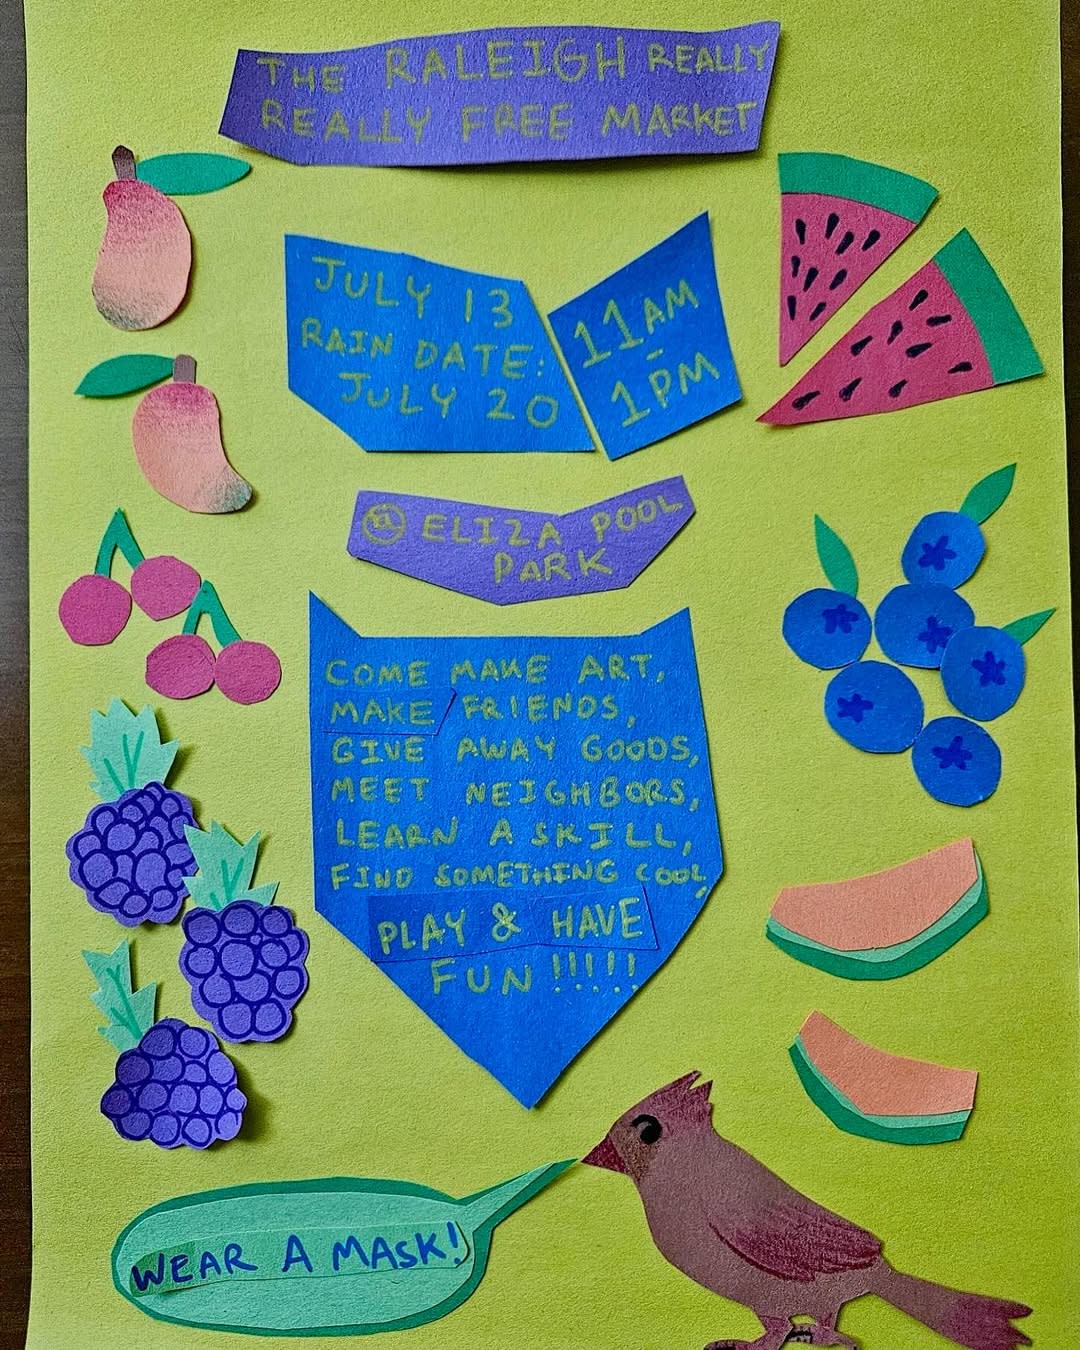 THE RALEIGH REALLY
REALLY FREE MARKET
JULY 13
RAIN DATE:
JULY 20
11AM
-
1PM
@ ELIZA POOL
PARK
COME MAKE ART,
MAKE FRIENDS,
GIVE AWAY GOODS,
MEET NEIGHBORS,
LEARN A SKILL,
FIND SOMETHING COOL,
PLAY & HAVE
FUN !!!!!
WEAR A MASK!